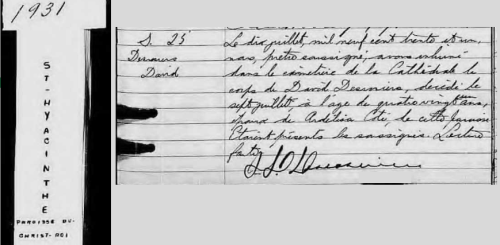 1931
ST-HYACINTHE
PAROISSE DU-
CHRIST-ROI
S. 25
Desmarais
David
Le dix juillet, mil neuf cent trente et un,
nous, prêtre soussigné, avons inhumé
dans le cimetière de la Cathédrale le
corps de David Desmarais, décédé le
sept juillet, à l'age de quatre vingt un ans,
époux de Adelina Coté, de cette paroisse
Etaient présents les soussignés. Lecture
faite.